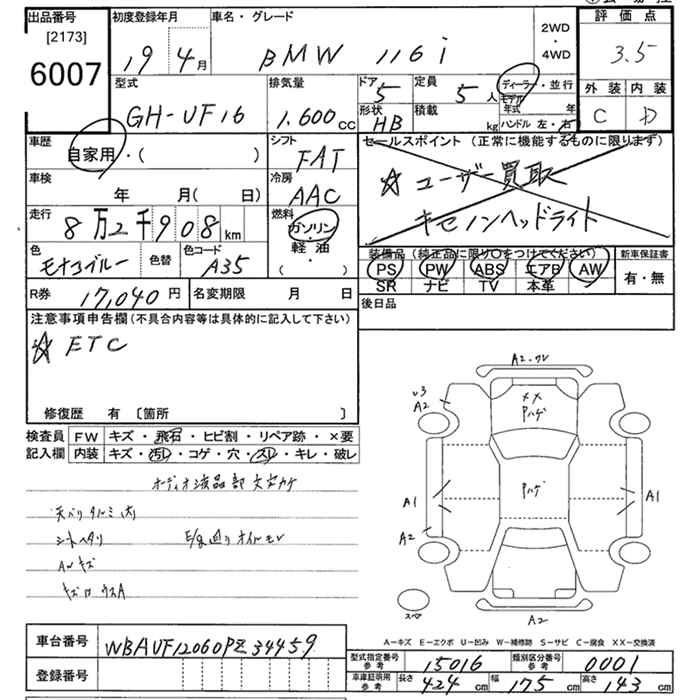 出品番号 初度登録年月 車名・グレード 2WD・4WD 評価点
[2173]
6007 19年4月 BMW 116i 3.5
型式 排気量 ドア 定員 ディーラー・並行 外装 内装
GH-UF16 1.600cc 5 5人 モデル年式 年 C D
形状 積載 ハンドル 左・右
HB kg
車歴 シフト セールスポイント (正常に機能するものに限ります)
自家用・( ) FAT ☆ユーザー買取
車検 冷房
年 月( 日) AAC キセノンヘッドライト
走行 燃料
8万2千908km ガソリン・軽油・( )
色 色替 色コード 装備品 (純正品に限り○をつけてください) 新車保証書
モナコブルー A35 PS PW ABS エアB AW 有・無
SR ナビ TV 本革
R券 17,040円 名変期限 月 日 後日品
注意事項申告欄 (不具合内容等は具体的に記入して下さい)
☆ETC
修復歴 有 〔箇所 〕
検査員 FW キズ・飛石・ヒビ割・リペア跡・×要
記入欄 内装 キズ・汚レ・コゲ・穴・スレ・キレ・破レ
オーディオ液晶部
シートヘタリ
AWキズ
A2・ワレ
A2
××
Pハゲ
Pハゲ
A1
A1
A2
スペア
A2
A-キズ E-エクボ U-凹み W-補修跡 S-サビ C-腐食 XX-交換済
車台番号 WBAUF12060PZ34459
登録番号
型式指定番号 参考 15016 類別区分番号 参考 0001
車庫証明用 参考 長さ 424cm 幅 175cm 高さ 143cm